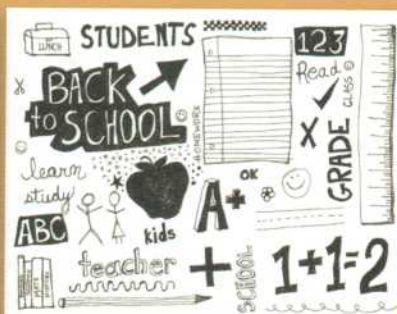 LUNCH
STUDENTS
123
BACK
to SCHOOL
Read
HOMEWORK
CLASS
GRADE
learn
study
OK
A+
ABC
kids
teacher
SCHOOL
1+1=2